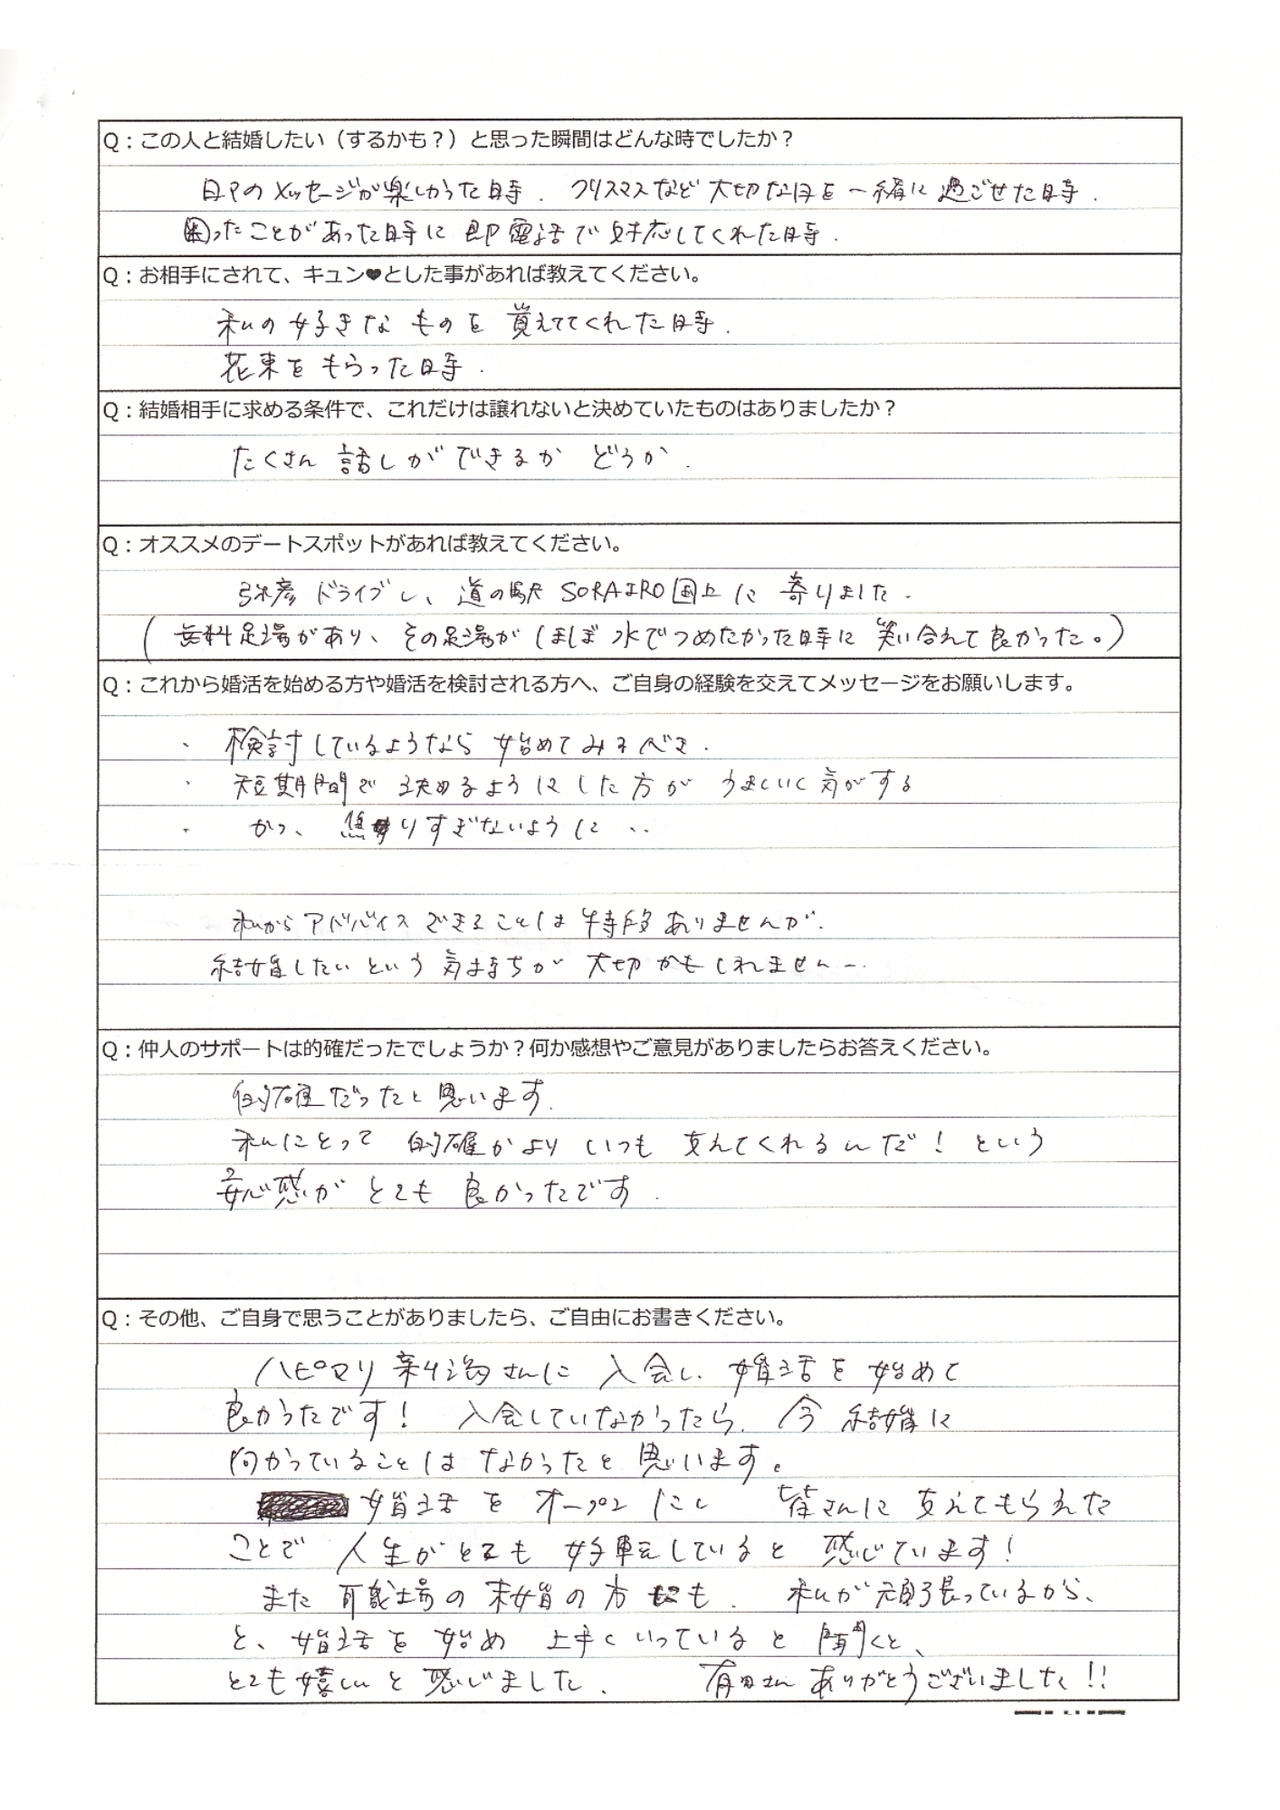 Q：この人と結婚したい（するかも？）と思った瞬間はどんな時でしたか？
日々のメッセージが楽しかった時．クリスマスなど大切な日を一緒に過ごせた時．
困ったことがあった時に即電話で対応してくれた時．
Q：お相手にされて、キュン♥とした事があれば教えてください。
私の好きなものを覚えててくれた時．
花束をもらった時．
Q：結婚相手に求める条件で、これだけは譲れないと決めていたものはありましたか？
たくさん話しができるかどうか．
Q：オススメのデートスポットがあれば教えてください。
弥彦ドライブし、道の駅SORAIRO国上に寄りました．
（無料足湯があり、その足湯がほぼ水でつめたかった時に笑い合えて良かった。）
Q：これから婚活を始める方や婚活を検討される方へ、ご自身の経験を交えてメッセージをお願いします。
・検討しているようなら始めてみるべき．
・短期間で決めるようにした方がうまくいく気がする
・かつ、焦りすぎないように‥
私からアドバイスできることは特段ありませんが．
結婚したいという気持ちが大切かもしれません…
Q：仲人のサポートは的確だったでしょうか？何か感想やご意見がありましたらお答えください。
的確だったと思います．
私にとって的確かよりいつも支えてくれるんだ！という
安心感がとても良かったです．
Q：その他、ご自身で思うことがありましたら、ご自由にお書きください。
ハピマリ新潟さんに入会し、婚活を始めて
良かったです！入会していなかったら、今結婚に
向かっていることはなかったと思います。
婚活をオープンにし皆さんに支えてもらえた
ことで人生がとても好転していると感じています！
また の未婚の方も．私が頑張っているから、
と、婚活を始め上手くいっていると聞くと、
とても嬉しいと感じました．有田さんありがとうございました!!